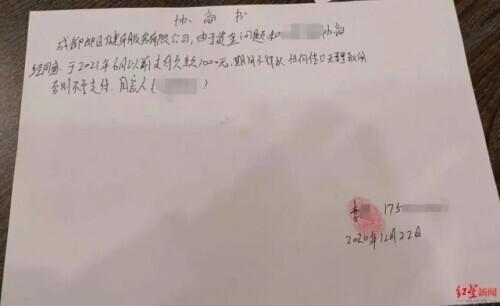 协商书
成都即日健身服务有限公司，由于资金问题和 协商
经同意，于2021年6月以前支付欠款1000元，期间不得以任何借口无理取闹
否则不予支付。同意人（ ）
李 175
2020年12月22日
红星新闻